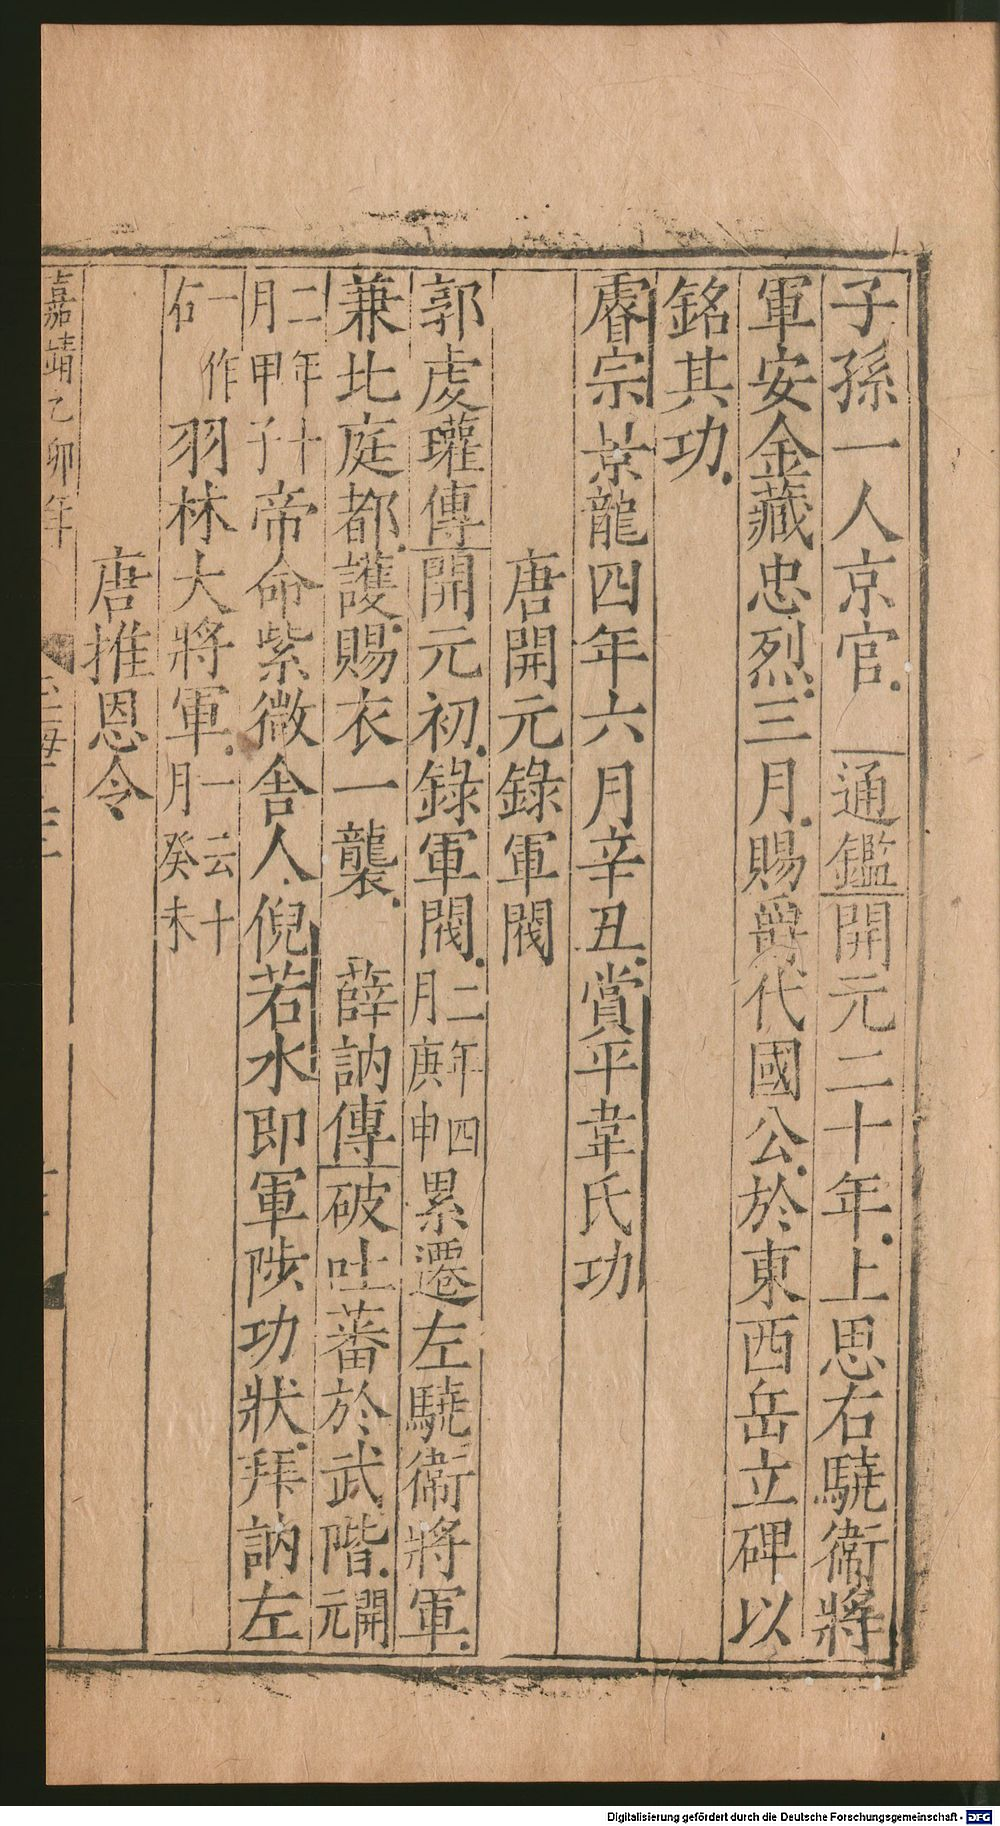 子孫一人京官通鑑開元二十年上思右驍衛將
軍安金藏忠烈三月賜爵代國公於東西岳立碑以
銘其功
睿宗景龍四年六月辛丑賞平韋氏功
唐開元錄軍閥
郭虔瓘傳開元初錄軍閥二年四月庚申累遷左驍衛將軍
兼北庭都護賜衣一襲 薛訥傳破吐蕃於武階開元
二年十月甲子帝命紫微舍人倪若水即軍陟功狀拜訥左
一作右羽林大將軍一云十月癸未
唐推恩令
嘉靖乙卯年
Digitalisierung gefördert durch die Deutsche Forschungsgemeinschaft - DFG